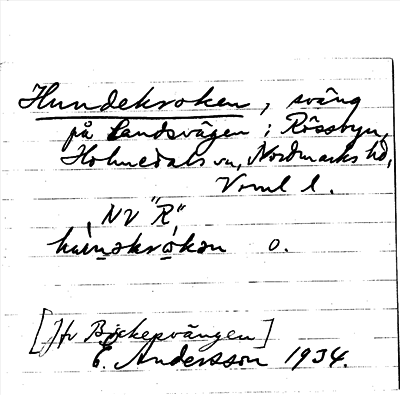 Hundekroken, sväng
på landsvägen i Rössbyn,
Holmedals sn, Nordmarks hd,
Vrml l.
NV "R"
hùnəkrókən o.
[Jfr Bäckesvängen]
E. Andersson 1934.